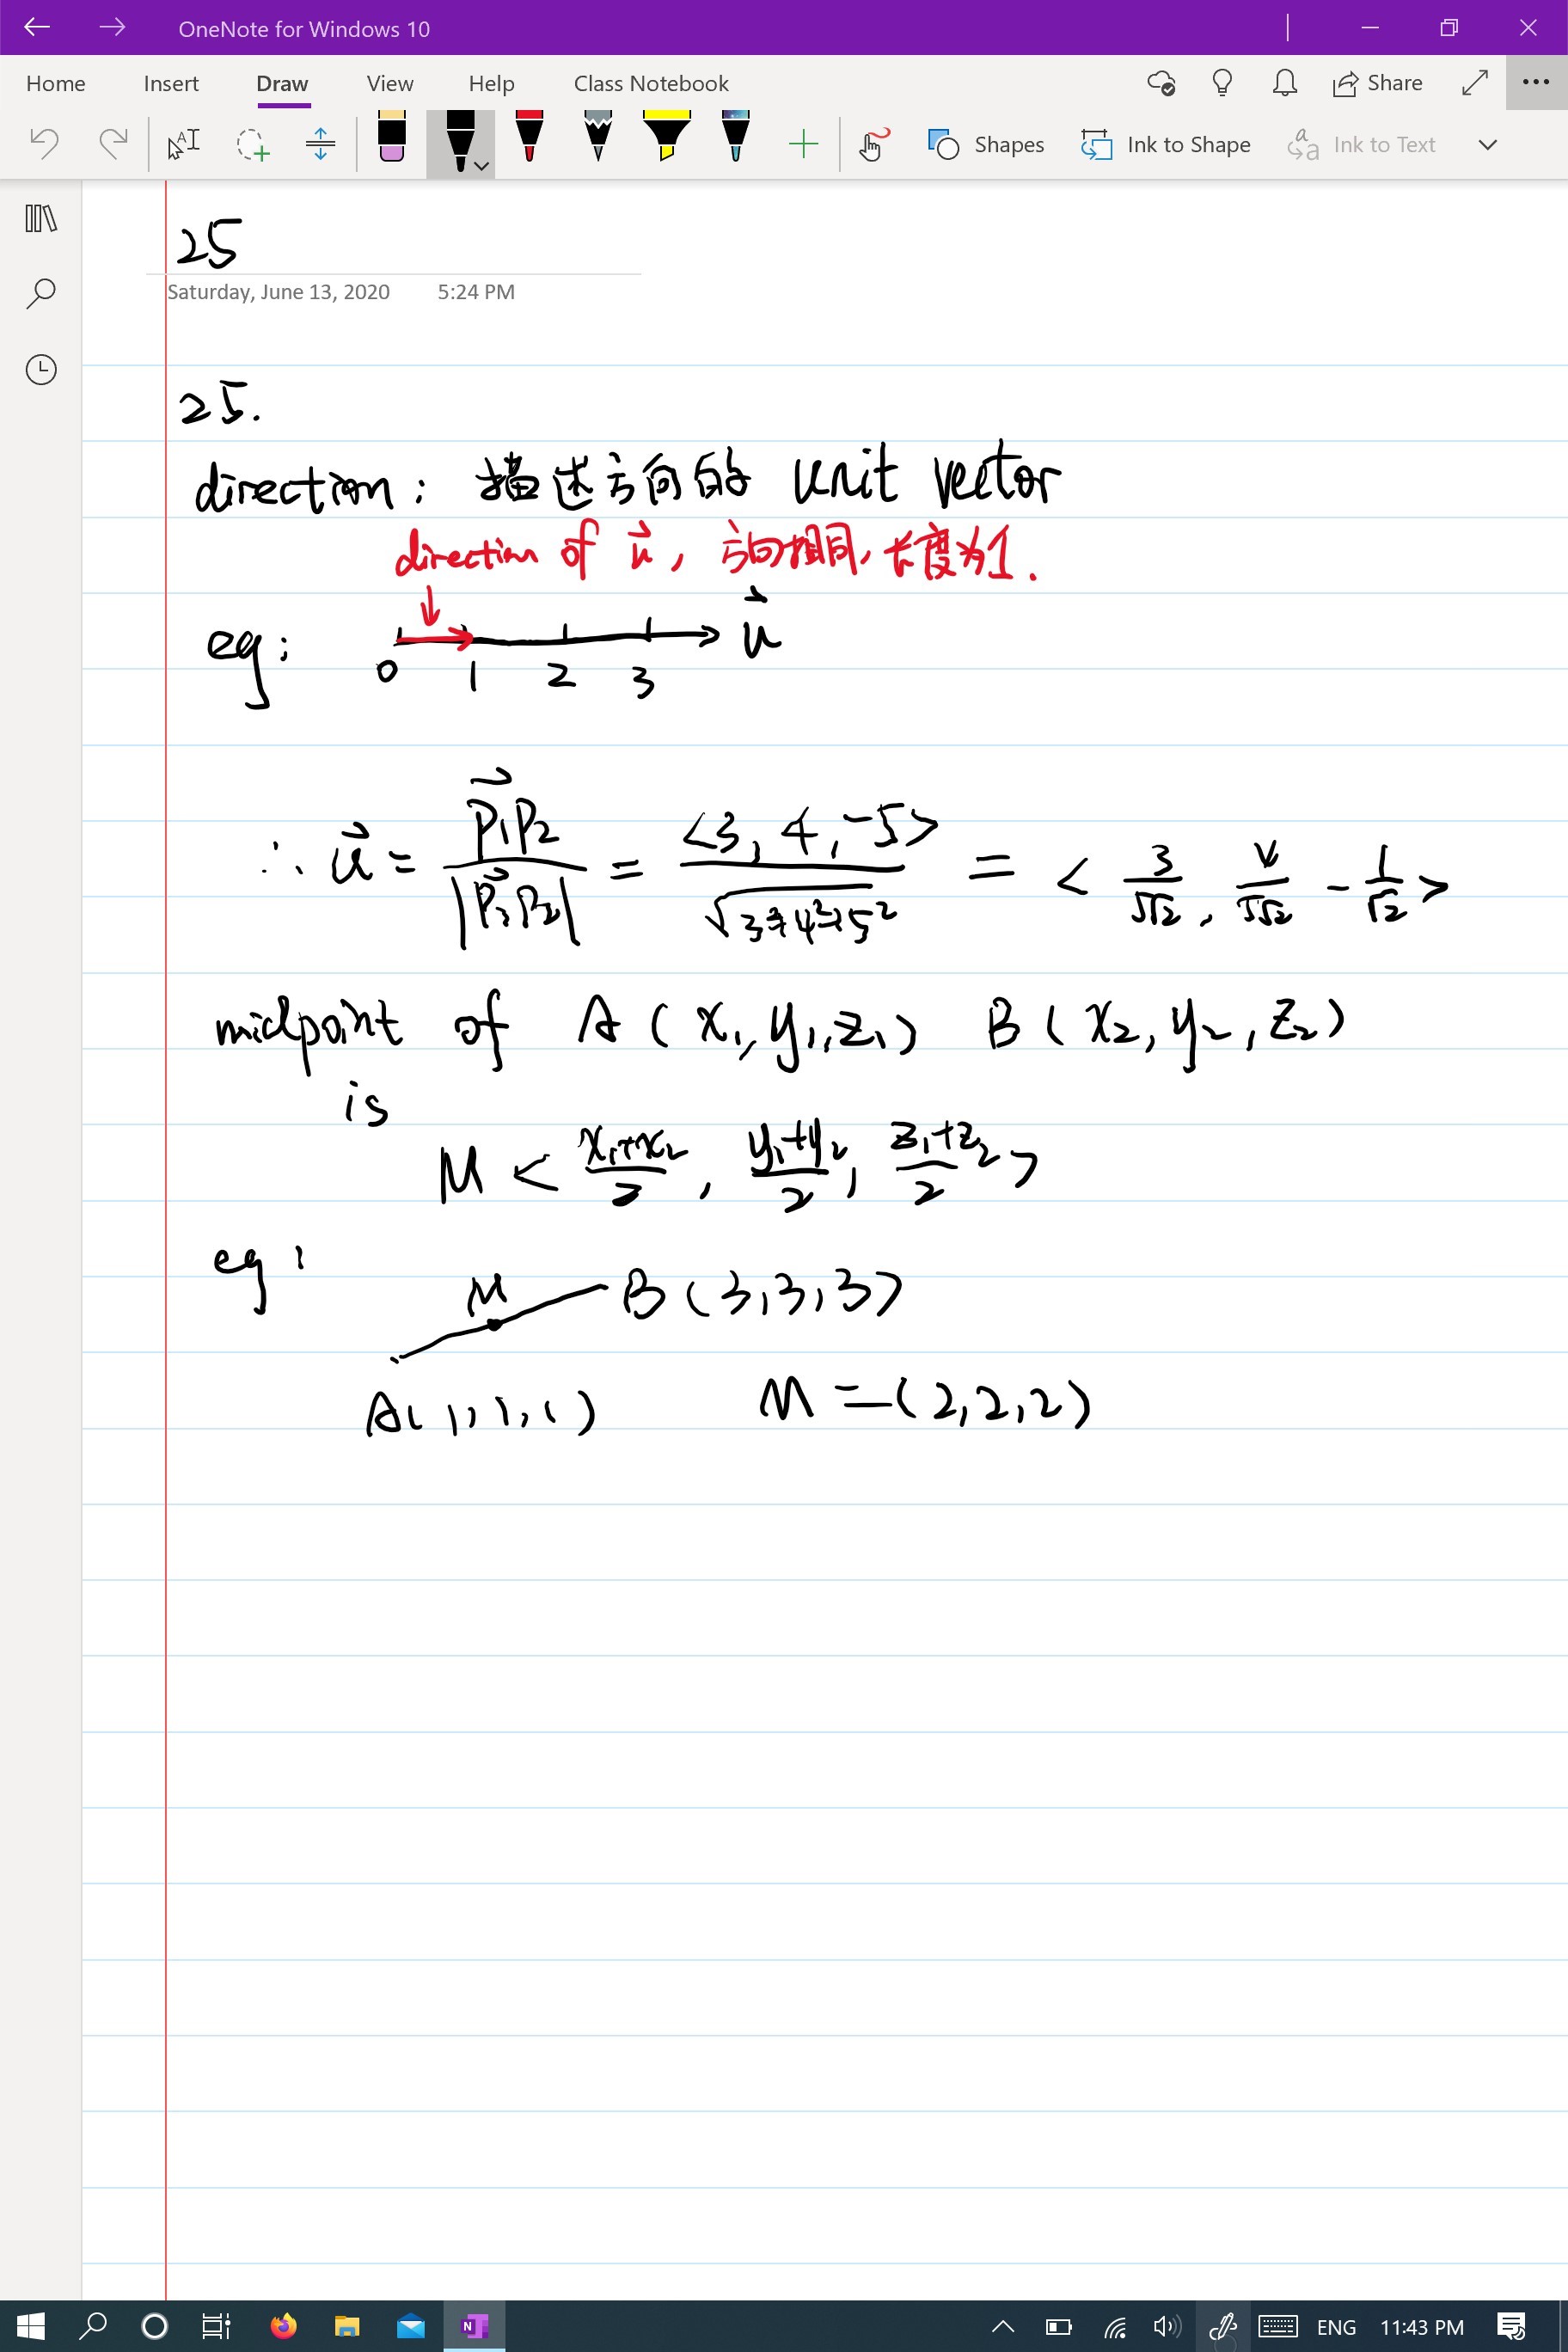 OneNote for Windows 10
Home Insert Draw View Help Class Notebook Share
Shapes Ink to Shape Ink to Text
25
Saturday, June 13, 2020 5:24 PM
25.
direction: 描述方向的 unit vector
direction of u⃗, 方向相同, 长度为1.
eg: u⃗
0 1 2 3
∴ u⃗ = P₁P₂/|P₁P₂| = <3, 4, -5>/√(3²+4²+5²) = < 3/5√2, 4/5√2, -1/√2 >
midpoint of A(x₁, y₁, z₁) B(x₂, y₂, z₂)
is
M < x₁+x₂/2, y₁+y₂/2, z₁+z₂/2 >
eg: M B(3,3,3)
A(1,1,1) M = (2,2,2)
ENG 11:43 PM